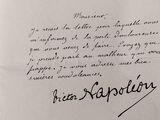 Monsieur,
Je reçus la lettre par laquelle vous
m'informez de la perte douloureuse
que
je prends part au malheur qui vous
frappe, je vous adresse mes bien
sincères condoléances.
Victor Napoléon